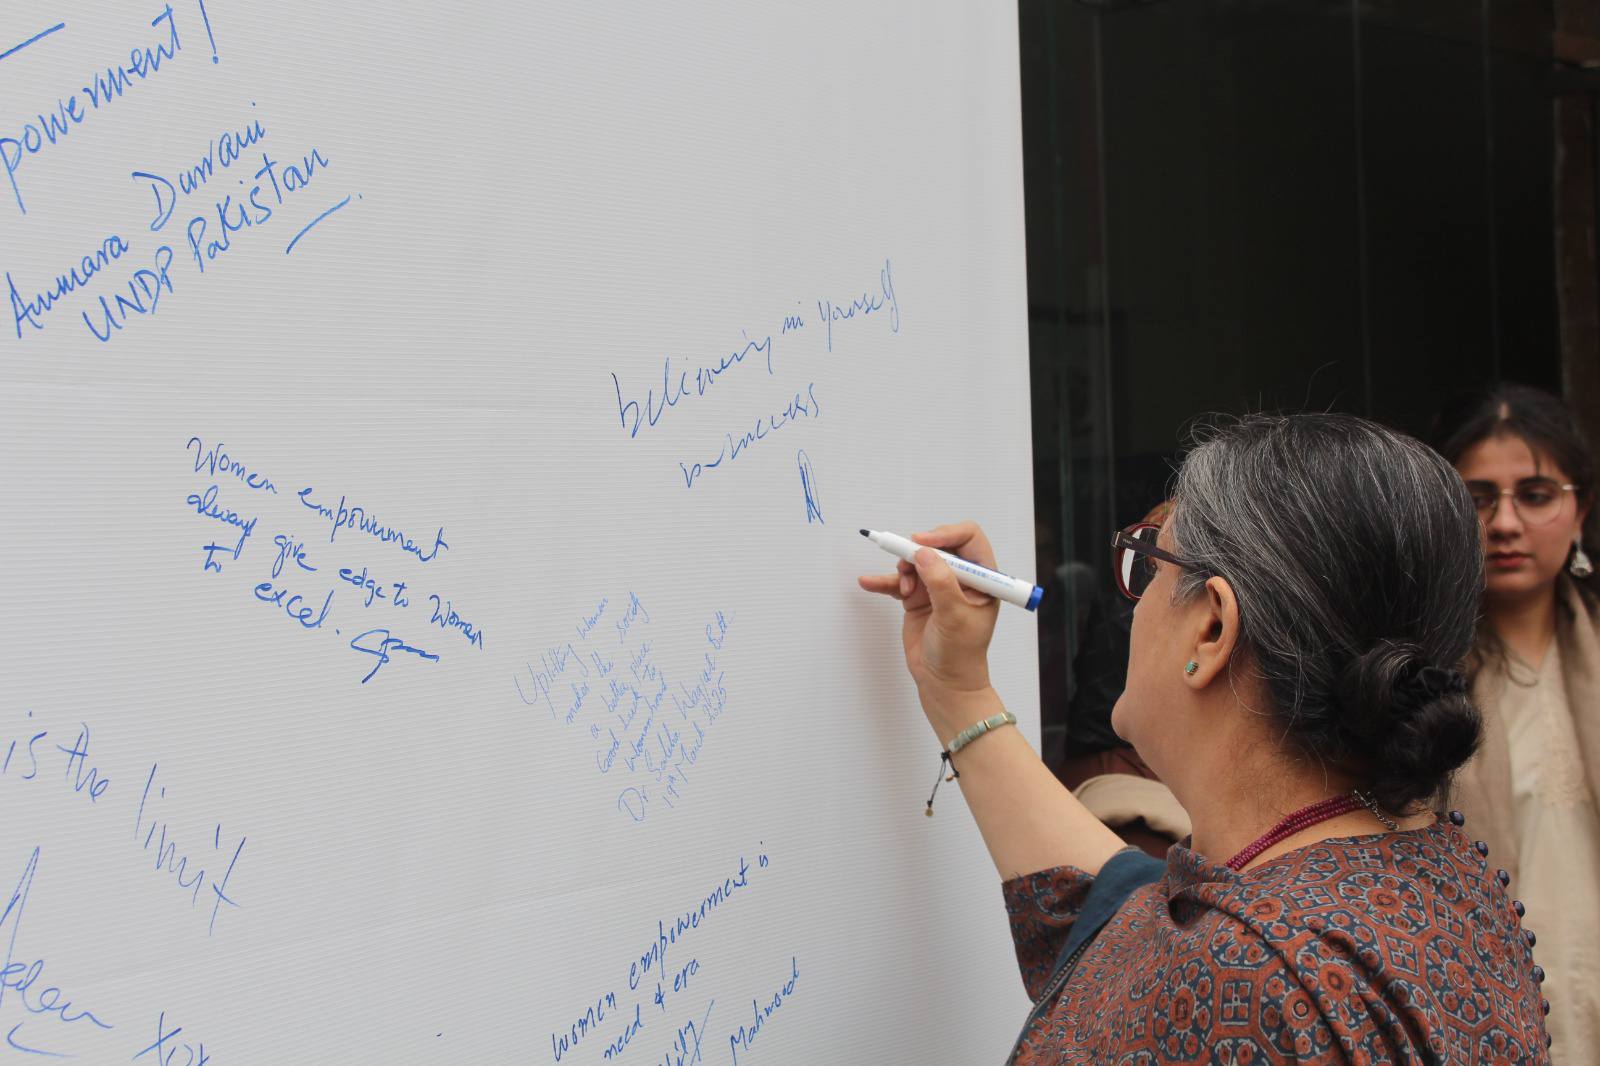 powerment!
Ammara Durrani
UNDP Pakistan
believing in yourself
is success
Women empowerment
always give edge to Women
to excel.
Uplifting women
makes the society
a better place.
Good Luck to
Womanhood
Dr. Saleha Butt
19th March 2025
is the limit
women empowerment is
need of era
Mahmood